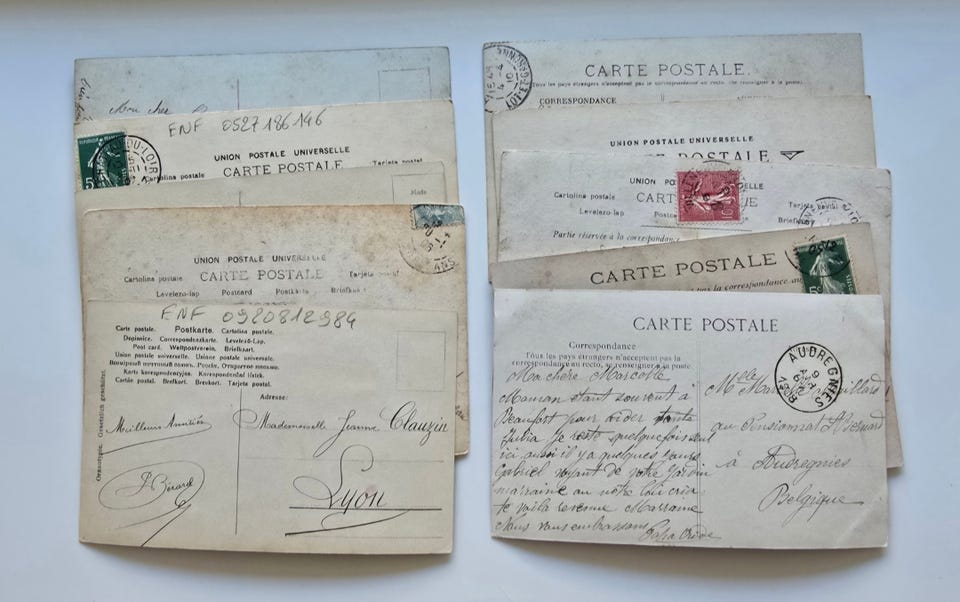 Mon
ENF 0527186146
UNION POSTALE UNIVERSELLE
CARTE POSTALE
Cartolina postale
Tarjeta postal
5
UNION POSTALE UNIVERSELLE
CARTE POSTALE
Cartolina postale
Tarjeta postal
Levelezo-lap Postcard Postkarte Briefkaart
ENF 0920812984
Carte postale. Postkarte. Cartolina postale.
Dopisnice. Correspondenzkarte. Levelező-Lap.
Post card. Weltpostverein. Briefkaart.
Union postale universelle. Unione postale universale.
Karta korespondencyjna. Korespondenční lístek.
Cartão postal. Brefkort. Brevkort. Tarjeta postal.
Adresse:
Meilleurs Amitiés
Mademoiselle Jeanne Clauzin
Lyon
Gesetzlich geschützt.
CARTE POSTALE.
Tous les pays étrangers n'acceptent pas la correspondance au recto, (Se renseigner à la poste).
CORRESPONDANCE
LOT-ET-GARONNE
UNION POSTALE UNIVERSELLE
CARTE POSTALE
UNION PO
Cartolina postale CART UE Tarjeta postal
Levelezo-lap Postc Briefkaart
Partie réservée à la correspondance
10
CARTE POSTALE
pas la correspondance au
5
CARTE POSTALE
Correspondance
Tous les pays étrangers n'acceptent pas la
correspondance au recto, se renseigner à la poste.
AUDREGNIES
Ma chère Marcelle
Maman étant souvent à
Beaufort pour aider tante
Julia je reste quelquefois seul
ici aussi il y a quelques jours
Gabriel voyant de votre jardin
marraine au nôtre lui cria
te voilà revenue Marraine
Nous vous embrassons
Mlle
au Pensionnat Bernard
à Audregnies
Belgique